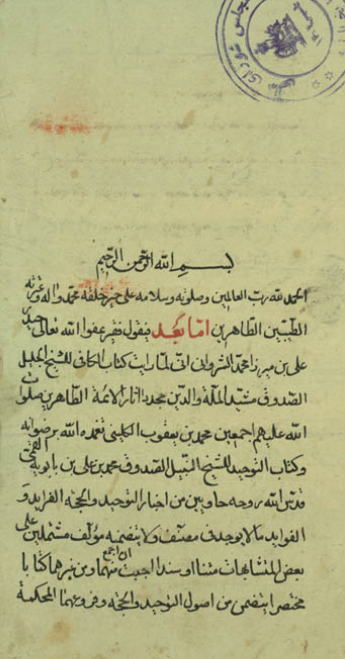 بسم الله الرحمن الرحيم
الحمد لله رب العالمين وصلوته وسلامه على خير خلقه محمد واله وعترته
الطيبين الطاهرين اما بعد فيقول فقير عفو الله تعالى حيدر
على بن ميرزا محمد الشرواني انى لما رايت كتاب الكافى للشيخ الجليل
الصدوق مشيد الملة والدين مجدد اثار الائمة الطاهرين صلوات
الله عليهم اجمعين محمد بن يعقوب الكلينى تغمده الله برضوانه
وكتاب التوحيد للشيخ النبيل الصدوق محمد بن على بن بابويه القمى
قدس الله روحه حاويين من اخبار التوحيد والحجة الفرايد و
الفوايد ما لا يوجد فى مصنف ولا يتضمنه مؤلف مشتملين على
بعض المتشابهات متنا او سندا احببت ان اجمع منهما ومن غيرهما كتابا
مختصرا يتضمن من اصول التوحيد والحجة وفروعهما المحكمة